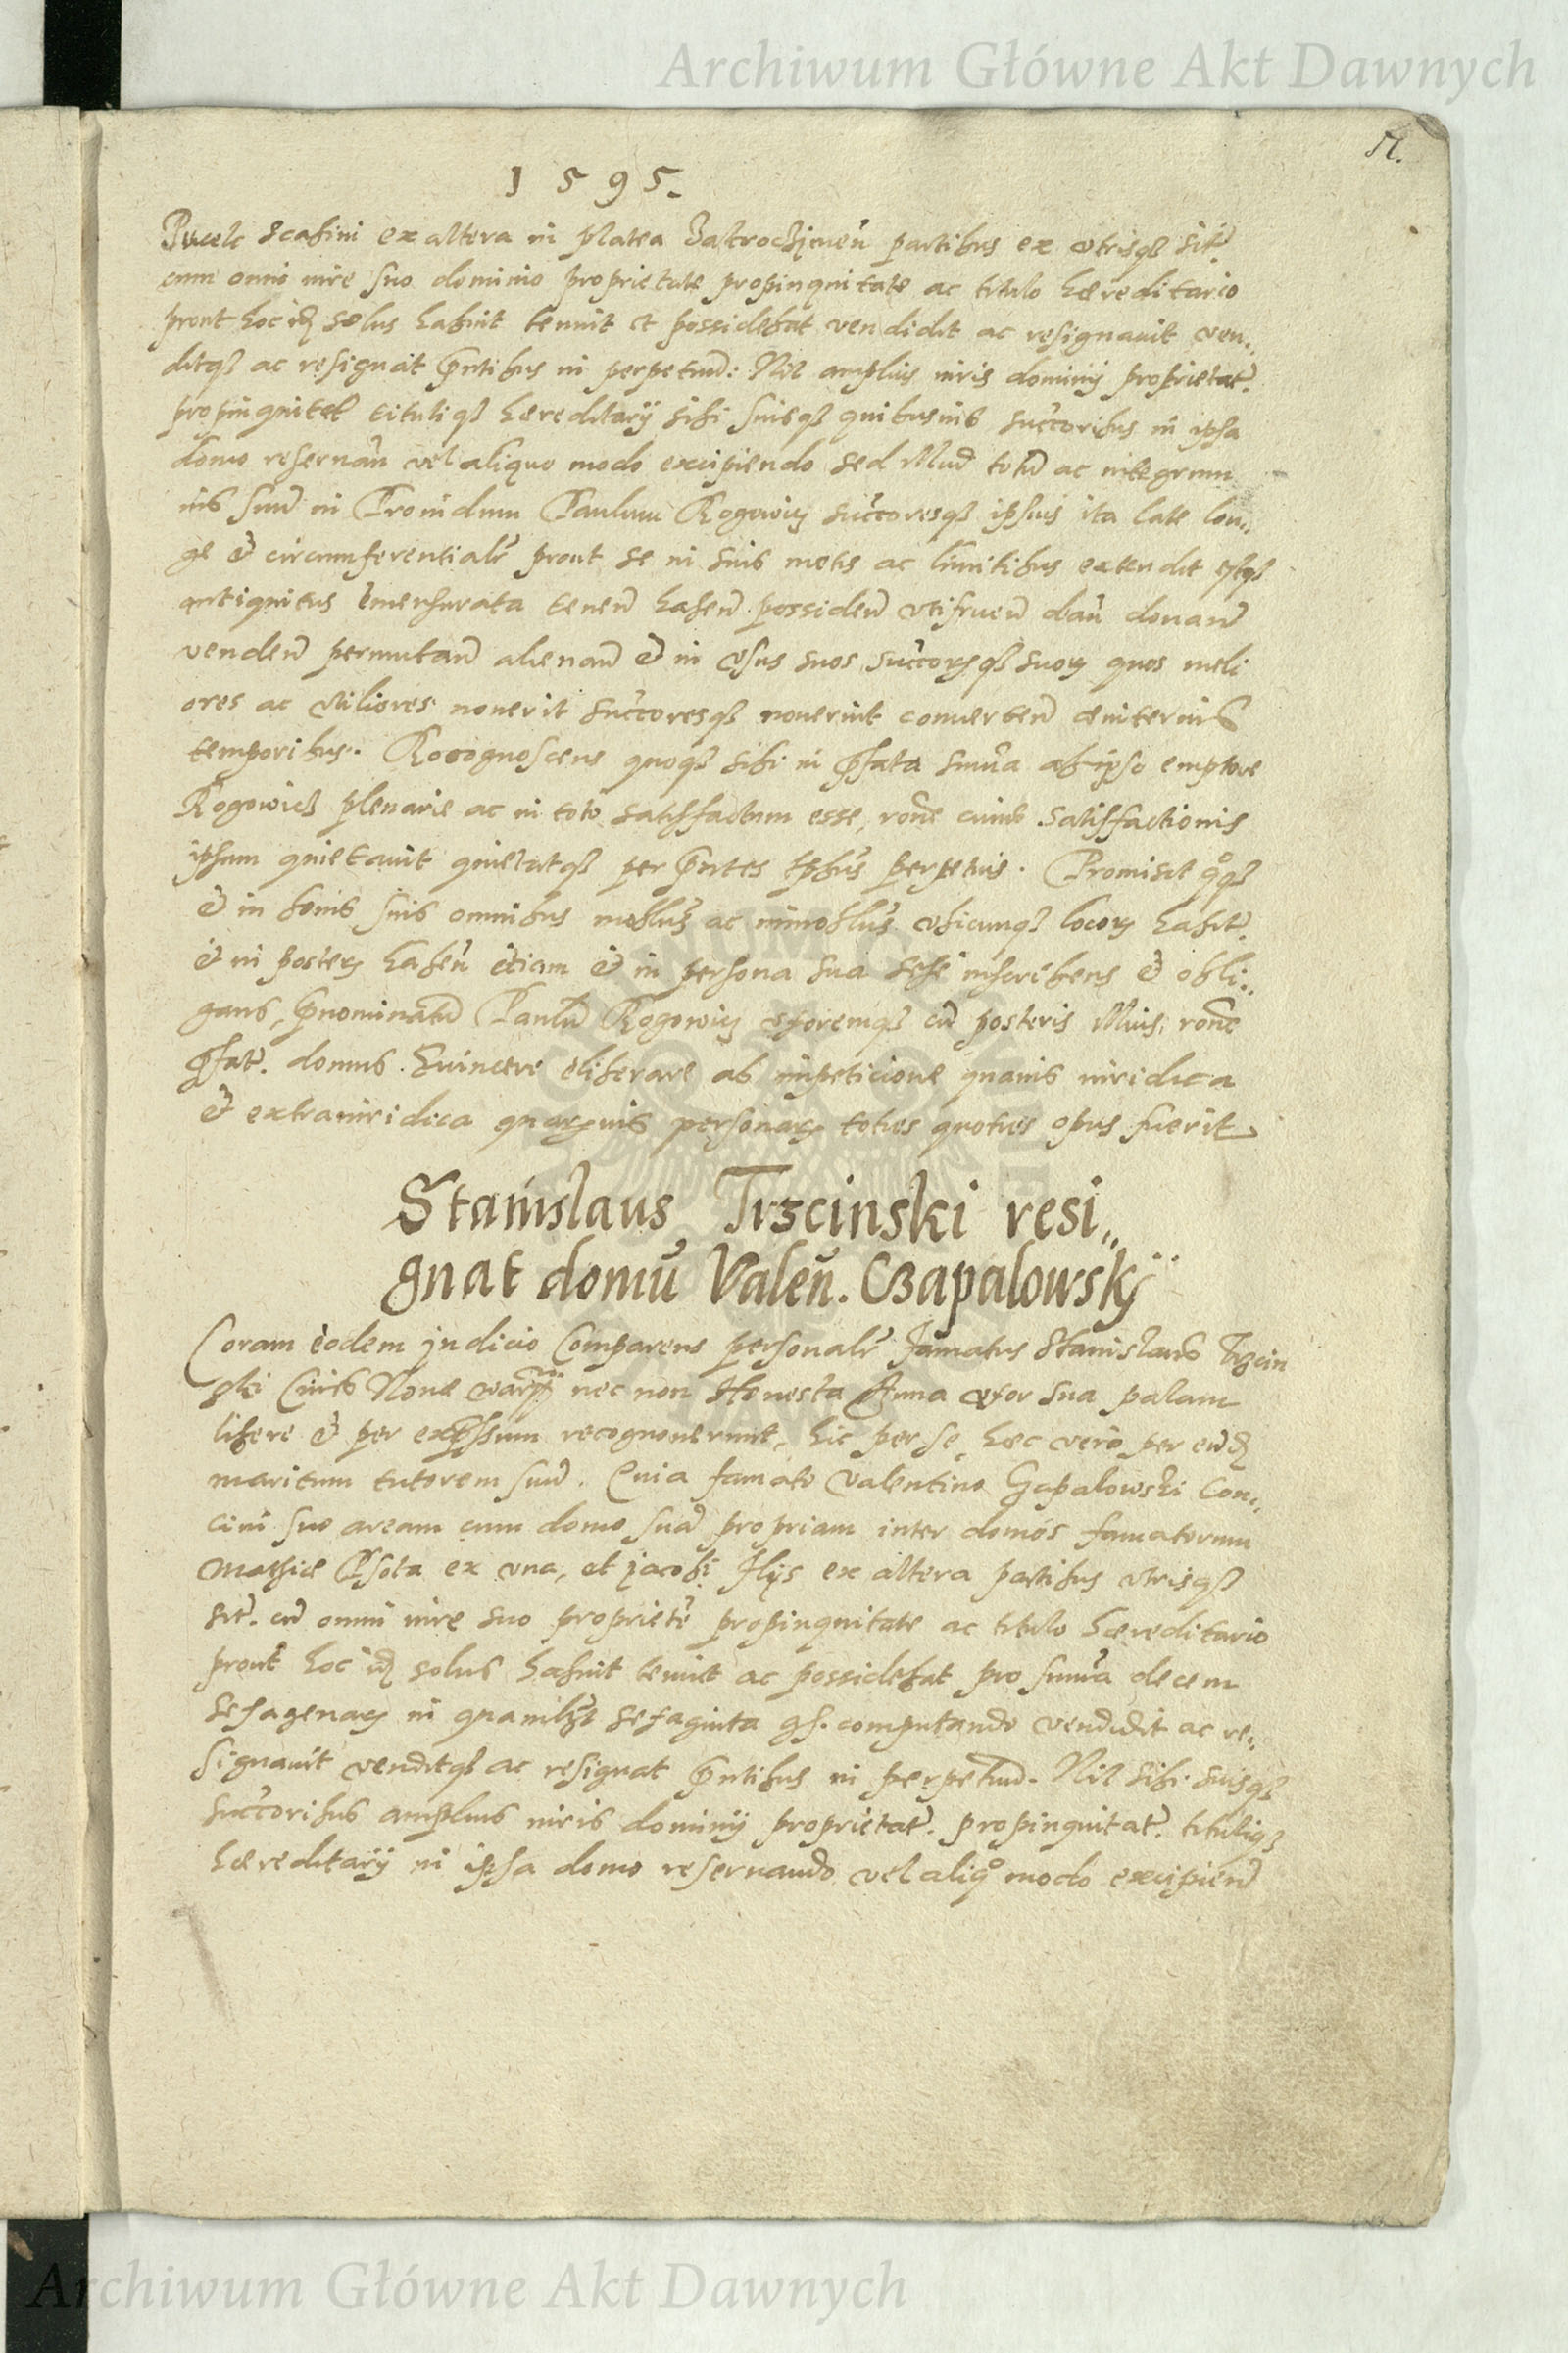 Archiwum Główne Akt Dawnych
51.
1595.
Pucek Scabini ex altera in platea Zakroczijmen̄ partibus ex vtrisqꝫ sit̄.
cum omni iure suo dominio proprietate propinquitate ac titulo hæreditario
prout hoc idꝫ solus habuit tenuit et possidebat vendidit ac resignauit ven„
ditqꝫ ac resignat p̄ntibus in perpetuū: Nil amplius iuris dominij proprietat̄.
propinquitat̄ tituliqꝫ hæreditarij sibi suisqꝫ quibusuis succ̄oribus in ipsa
domo reseruan̄ vel aliquo modo excipiendo sed illud totū ac integrum
ius suū in Prouidum Paulum Rogowicz succ̄oresqꝫ ipsius ita late lon„
ge & circumferentialr̄ prout se in suis metis ac limitibus extendit estqꝫ
antiquitus emensurata tenen̄ haben̄ possiden̄ vtifruen̄ dan̄ donan̄
venden̄ permutan̄ alienan̄ & in vsus suos succ̄orꝫqꝫ suorꝫ quos meli
ores ac vtiliores nouerit succ̄oresqꝫ nouerint conuerten̄ æuiternis
temporibus. Recognoscens quoqꝫ sibi in p̄fata sum̄a ab ipso emptore
Rogowicz plenarie ac in toto satisfactum esse, rōne cuius satisfactionis
ipsum quietauit quietatqꝫ per p̄ntes tp̄bus perpetuis. Promisit qͦqꝫ
& in bonis suis omnibus mobilibꝯ ac immobilibꝯ vbicunqꝫ locorꝫ habit̄.
& in posterꝫ haben̄ etiam & in persona sua sese inscribens & obli„
gans, p̄nominatū Paulū Rogowicz vxoremqꝫ cū posteris illius, rōne
p̄fat̄. domus. Euincere eliberare ab impeticione quauis iuridica
& extraiuridica quarꝫuis personarꝫ toties quoties opus fuerit
Stanislaus Trzcinski resi„
gnat domū Valen̄. Czapalowskij
Coram eodem judicio Comparens personalr̄ famatus Stanislaus Trzcin
ski Ciuis Nouæ warß nec non Honesta Anna vxor sua palam
libere & per expressum recognouerunt, hic per se hæc vero per eūdꝫ
maritum tutorem suū. Quia famato Valentino Czapalowski Con„
ciui suo aream cum domo suā propriam inter domos famatorum
Mathiæ Psota ex vna, et jacobi Ilijs ex altera partibus vtrisqꝫ
sit̄. cū omni iure suo proprietē propinquitate ac titulo hæreditario
prout hoc idꝫ solus habuit tenuit ac possidebat pro sum̄a decem
sexagenarꝫ in quamlꝫt sexaginta gr. computando vendidit ac re„
signauit venditqꝫ ac resignat p̄ntibus in perpetuū. Nil sibi suisqꝫ
succ̄oribus amplius iuris dominij proprietat̄. propinquitat̄. tituliqꝫ
hæreditarij in ipsa domo reseruando vel aliqͦ modo excipien̄
Archiwum Główne Akt Dawnych